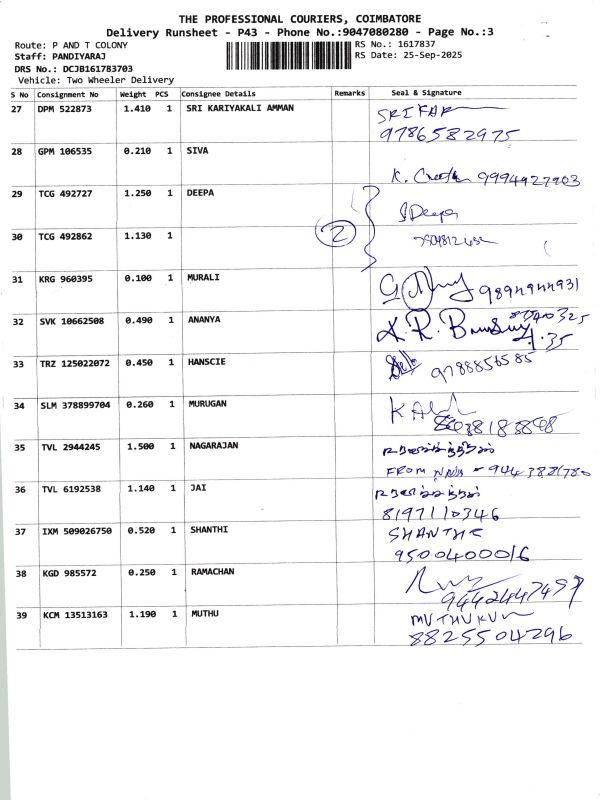 THE PROFESSIONAL COURIERS, COIMBATORE
Delivery Runsheet - P43 - Phone No.:9047080280 - Page No.:3
Route: P AND T COLONY
RS No.: 1617837
Staff: PANDIYARAJ
RS Date: 25-Sep-2025
DRS No.: DCJB161783703
Vehicle: Two Wheeler Delivery
S No Consignment No Weight PCS Consignee Details Remarks Seal & Signature
27 DPM 522873 1.410 1 SRI KARIYAKALI AMMAN
9786582975
28 GPM 106535 0.210 1 SIVA
K. 9994927903
29 TCG 492727 1.250 1 DEEPA
Deepa
2
30 TCG 492862 1.130 1
31 KRG 960395 0.100 1 MURALI
32 SVK 10662508 0.490 1 ANANYA
K. R.
33 TRZ 125022072 0.450 1 HANSCIE
9788856585
34 SLM 378899704 0.260 1 MURUGAN
35 TVL 2944245 1.500 1 NAGARAJAN
FROM
36 TVL 6192538 1.140 1 JAI
8197110346
37 IXM 509026750 0.520 1 SHANTHI
SHANTHI
9500400016
38 KGD 985572 0.250 1 RAMACHAN
39 KCM 13513163 1.190 1 MUTHU
8825504296